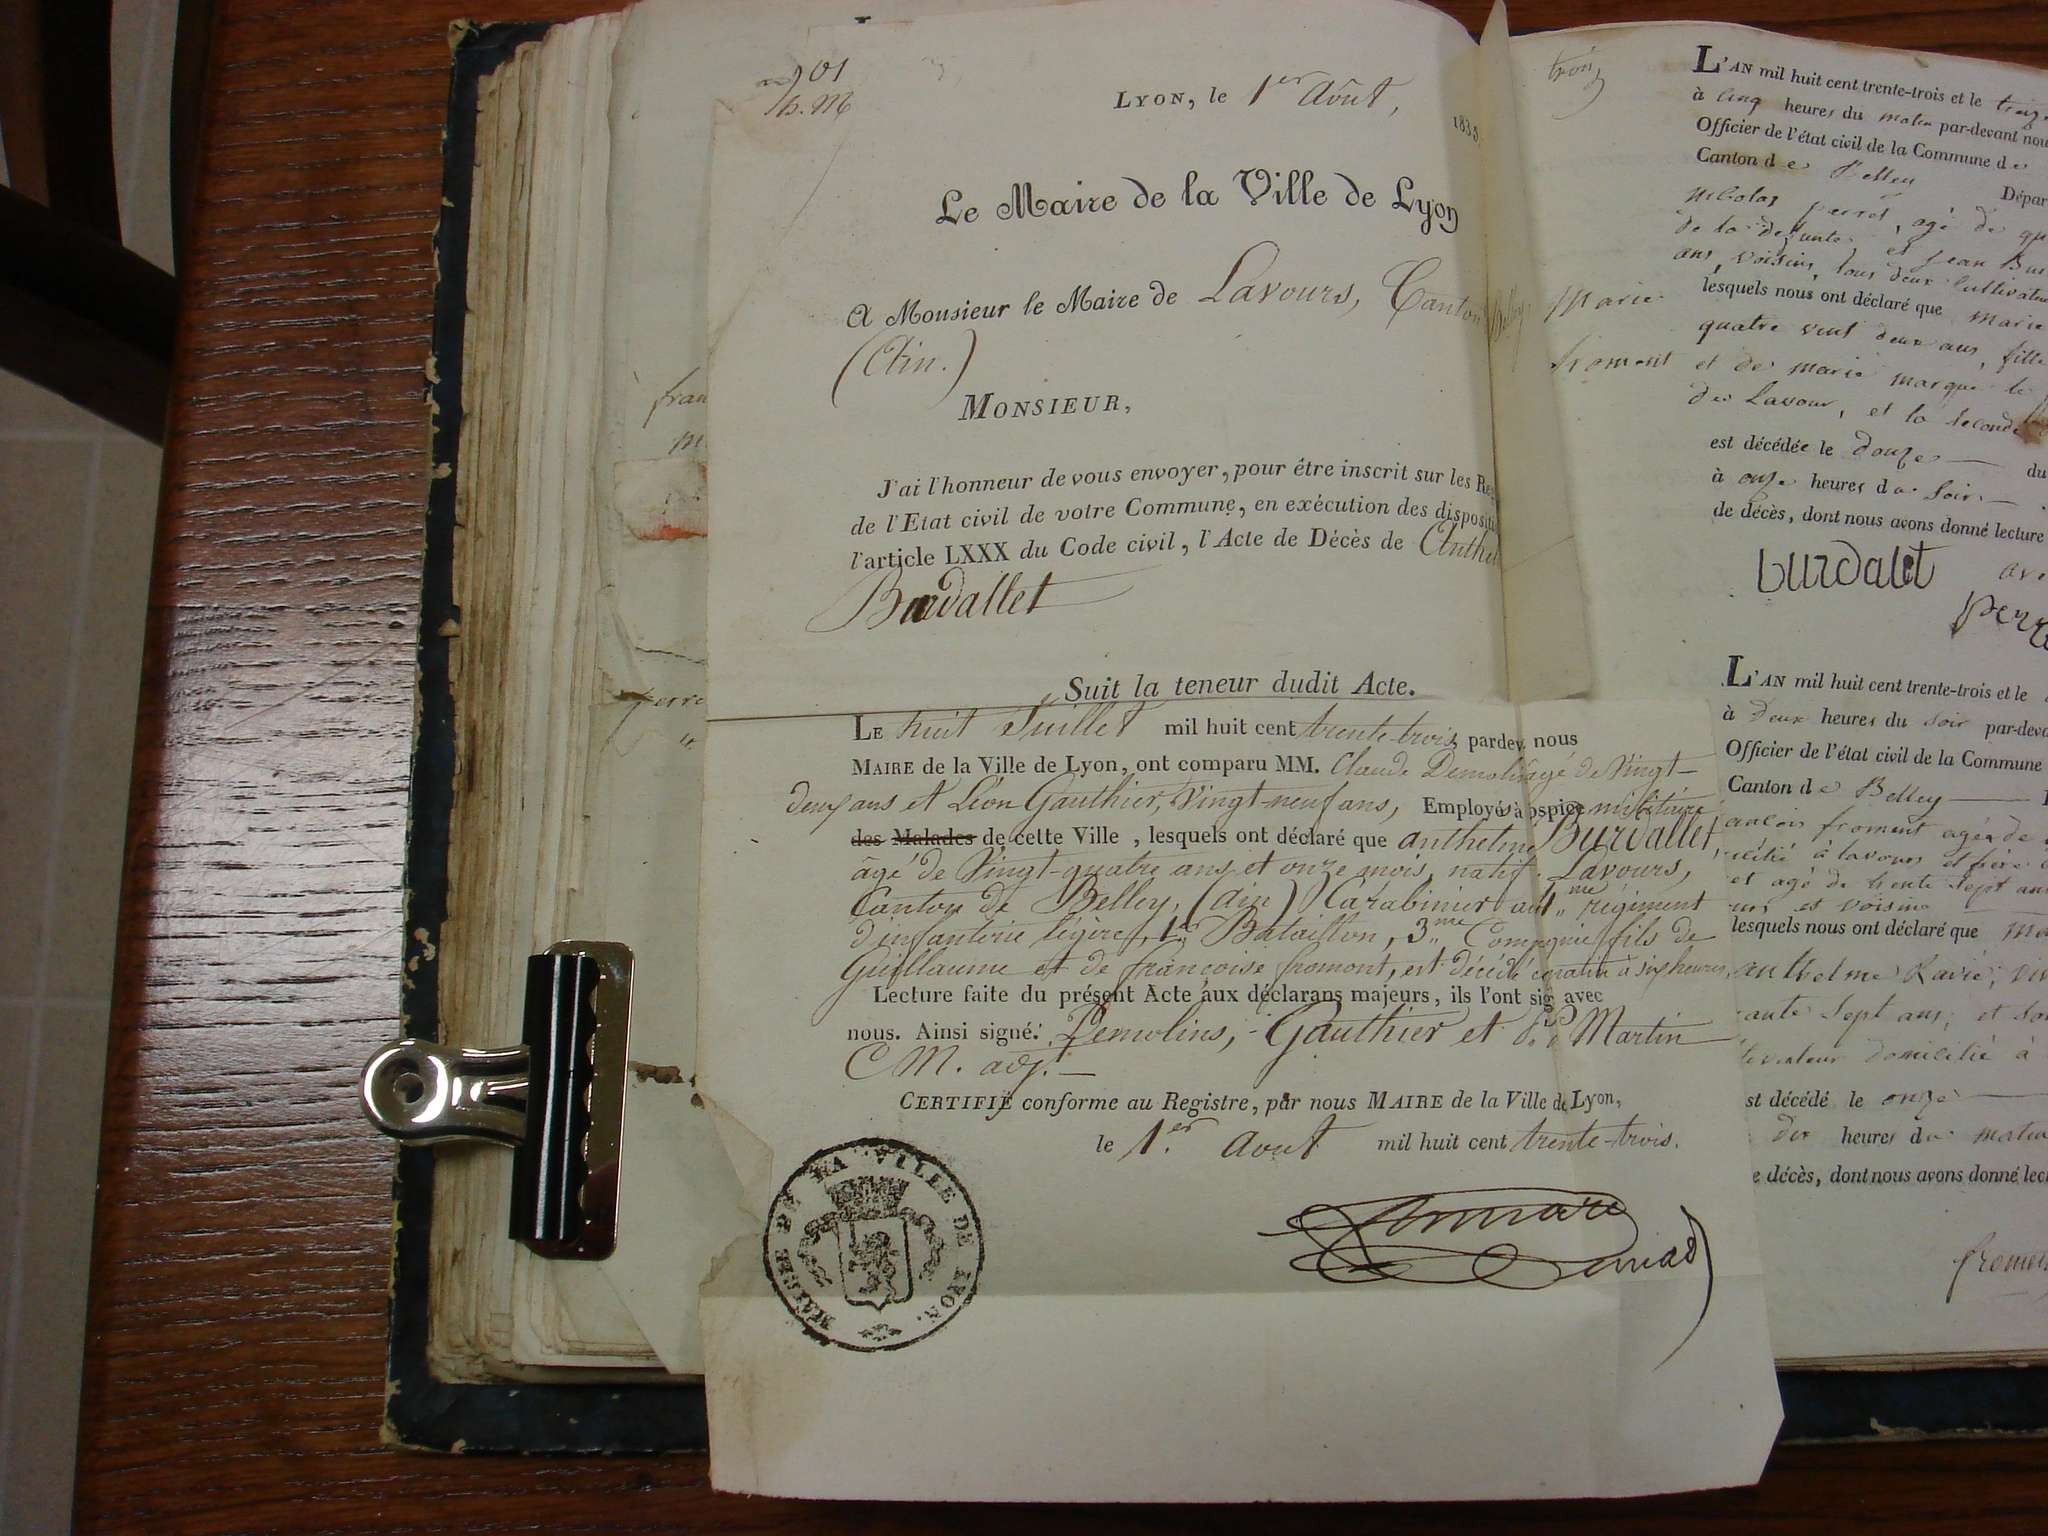 901
LYON, le 1er Août, 1833.
Le Maire de la Ville de Lyon
A Monsieur le Maire de Lavours, Canton
(Ain.)
MONSIEUR,
J'ai l'honneur de vous envoyer, pour être inscrit sur les Re
de l'Etat civil de votre Commune, en exécution des dispositi
l'article LXXX du Code civil, l'Acte de Décès de Anthel
Burdallet
Suit la teneur dudit Acte.
LE huit Juillet mil huit cent trente-trois pardev nous
MAIRE de la Ville de Lyon, ont comparu MM. Claude âgé de Vingt-
deux ans et Léon Gauthier, Vingt-neuf ans, Employés à ospice militaire
des Malades de cette Ville, lesquels ont déclaré que anthelme Burdallet
âgé de Vingt-quatre ans et onze mois, natif Lavours,
Canton de Belley, (ain) Carabinier au 1me régiment
d'infanterie légère, 1er Bataillon, 3me Compagnie fils de
Guillaume et de françoise fromont, est décédé à six heures
Lecture faite du présent Acte aux déclarans majeurs, ils l'ont sig avec
nous. Ainsi signé: Demolins, Gauthier et Martin
C M. adj.
CERTIFIÉ conforme au Registre, par nous MAIRE de la Ville de Lyon,
le 1er Aout mil huit cent trente-trois.
MAIRIE DE LA VILLE DE LYON.
fran
perre
Marie
froment
L'AN mil huit cent trente-trois et le treize
à cinq heures du matin par-devant nou
Officier de l'état civil de la Commune de
Canton de Belley Dépar
nicolas perret, agé de qu
de la defunte, et jean Bur
ans, voisins, tous deux cultivateu
lesquels nous ont déclaré que marie
quatre vint deux ans, fille
et de marie marque le
de Lavour, et la seconde
est décédée le douze du
à onze heures du soir
de décès, dont nous avons donné lecture
burdalet
perre
L'AN mil huit cent trente-trois et le
à deux heures du soir par-deva
Officier de l'état civil de la Commune
Canton de Belley
ancois froment agée de
à lavours et
et agé de trente sept ans
et voisins
lesquels nous ont déclaré que
anthelme Ravié, vi
ante sept ans, et
domicilié à
st décédé le onze
dix heures du matin
e décès, dont nous avons donné lec
fromen